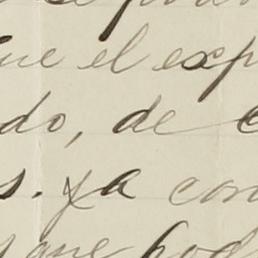 ue el exp
do, de
s. ya con
que pod